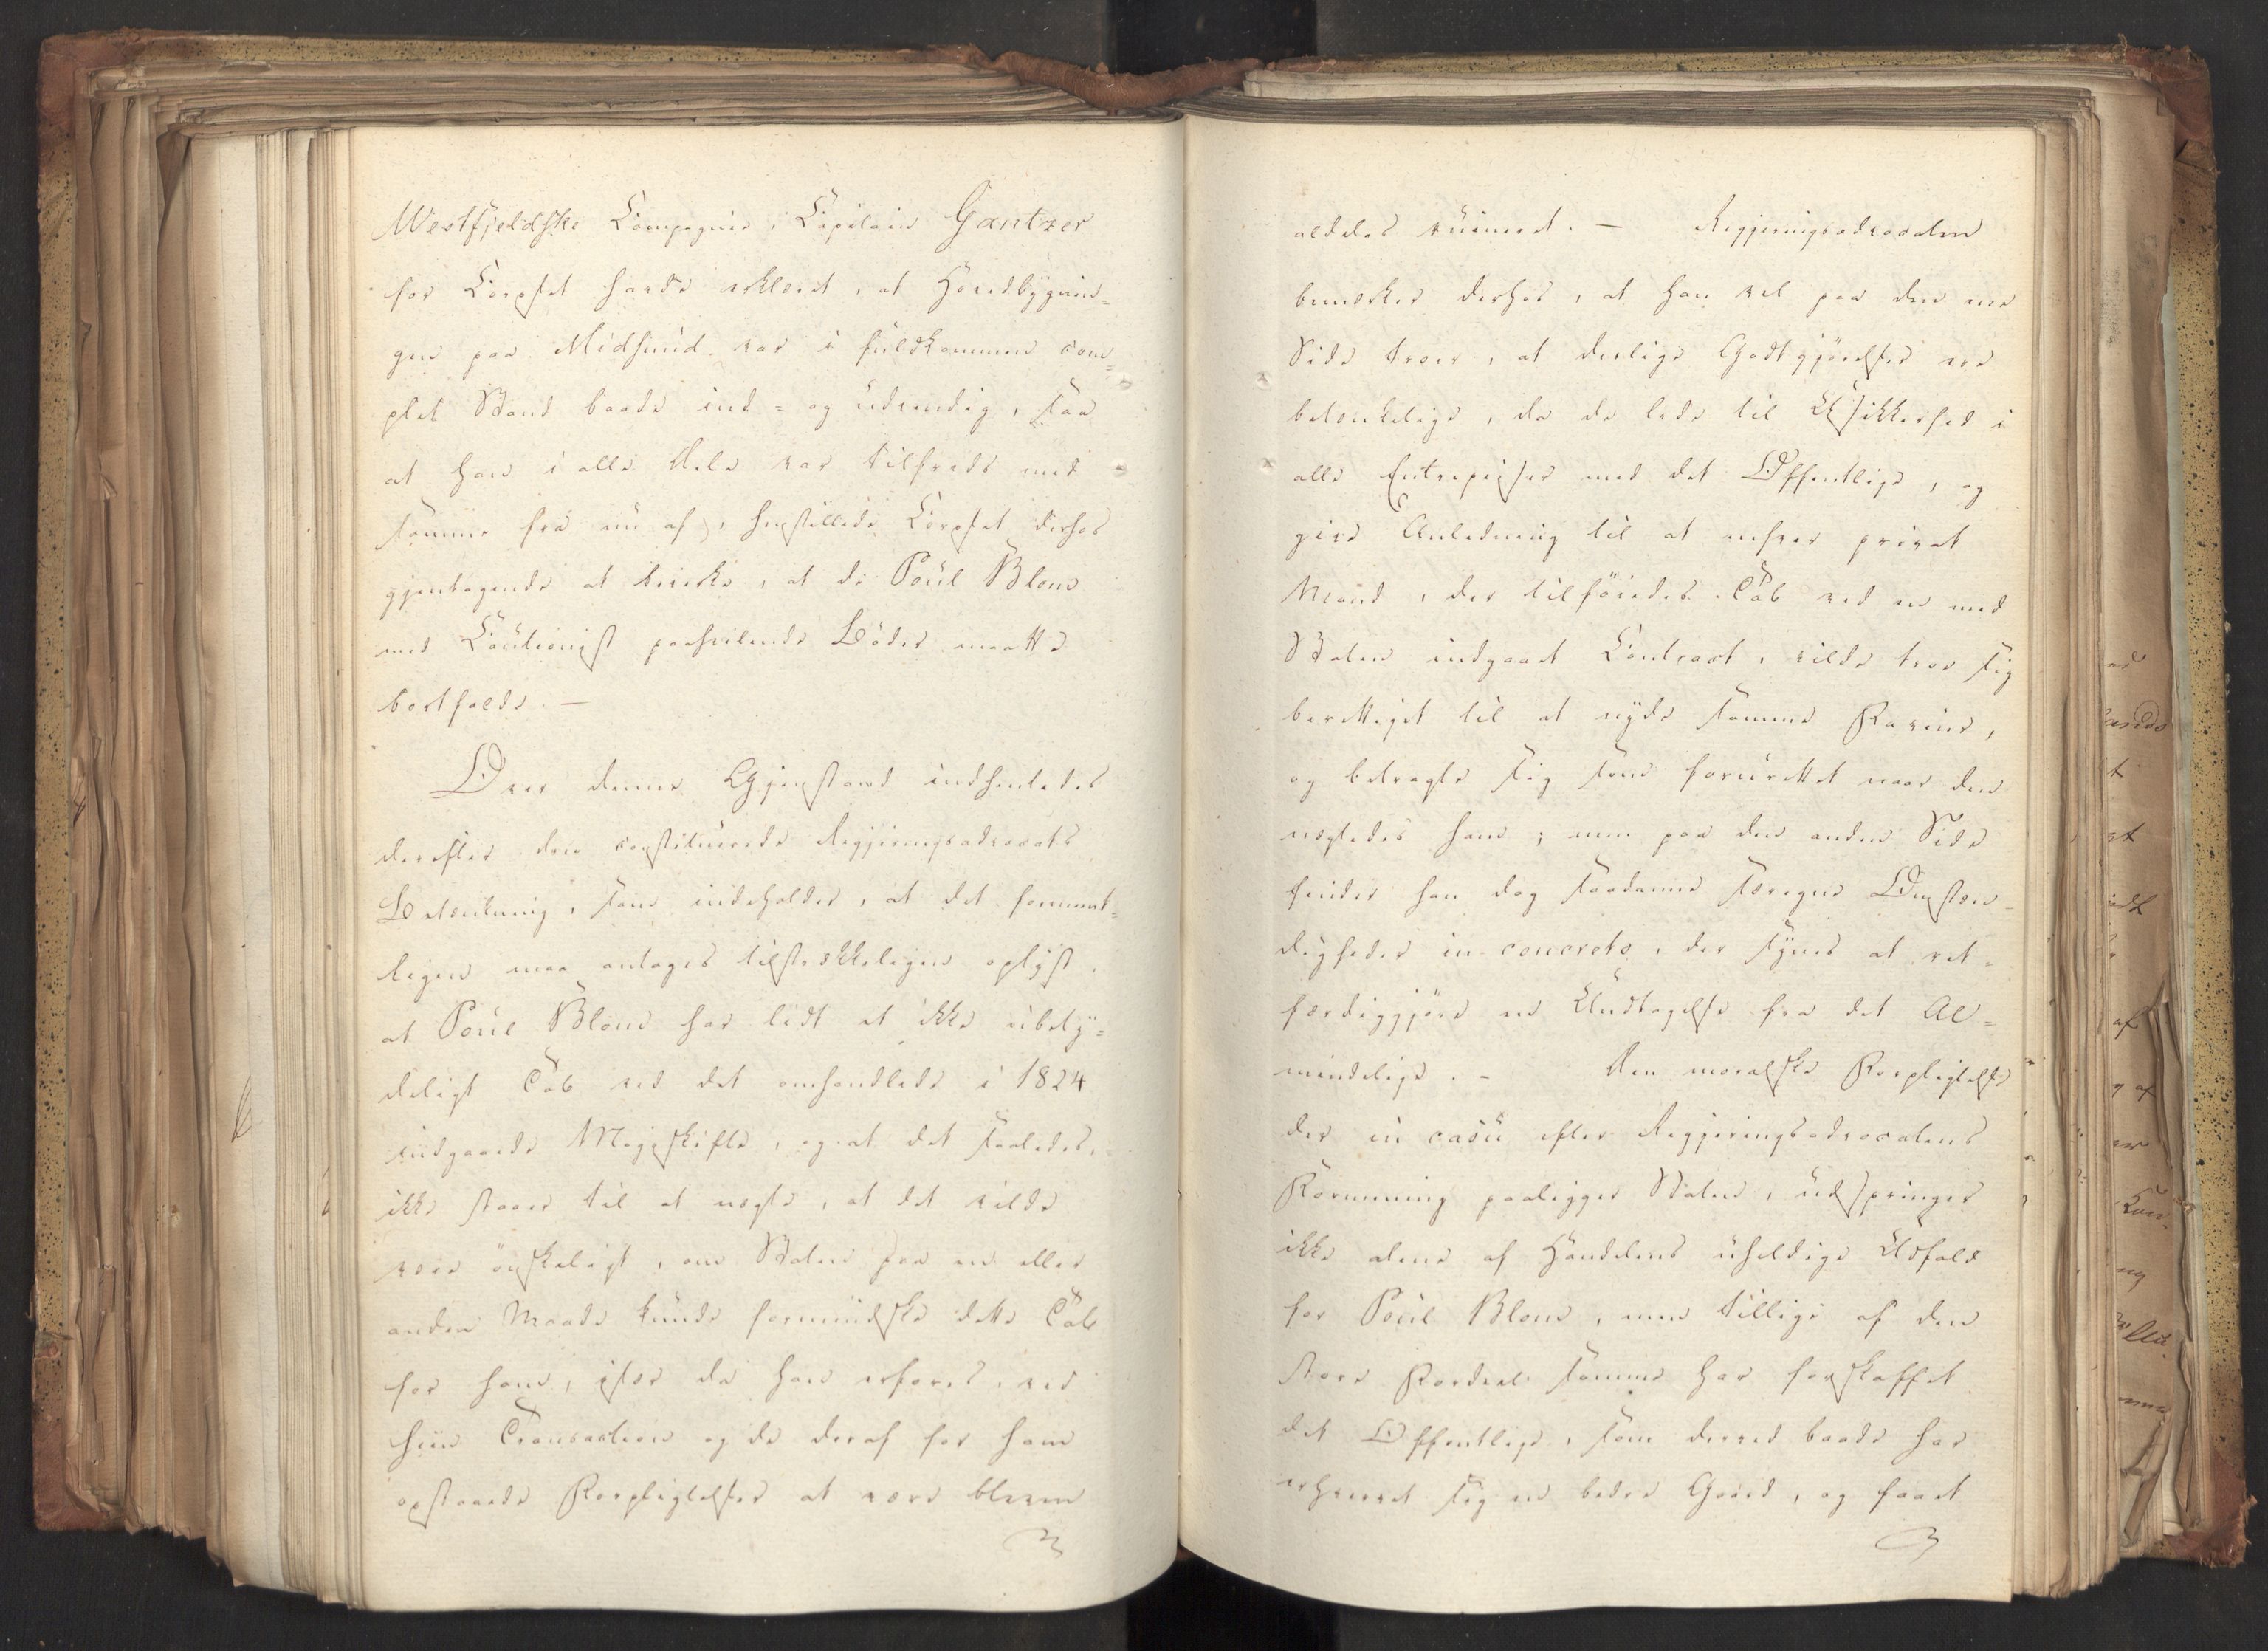 Westfjeldske Compagnie, Capitain Gantzer
for Corpset havde erklæret, at Hovedbygnin=
gen paa Midsund var i fuldkommen com=
plet Stand baade ind= og udvendig, saa
at han i alle Dele var tilfreds med
samme fra nu af, henstillede Corpset derhos
gjentagende at bevirke, at de Poul Blom
med Cautionist paahvilende Böder maatte
bortfalde. —
Over denne Gjenstand indhentedes
derefter den constituerede Regjeringsadvocats
Betænkning, som indeholder, at det formeent=
ligen maa antages tilstrækkeligen oplyst,
at Poul Blom har lidt et ikke ubety=
deligt Tab ved det omhandlede i 1824
indgaaede Mageskifte, og at det saaledes
ikke staaer til at negte, at det vilde
være önskeligt, om Staten paa en eller
anden Maade kunde formindske dette Tab
for ham, især da han erfares, ved
hiin Transaction og de deraf for ham
opstaaede Forpligtelser at være bleven
aldeles ruineret. — Regjeringsadvocaten
bemærker derhos, at han vel paa den ene
Side troer, at deslige Godtgjörelser ere
betænkelige, da de lede til Usikkerhed i
alle Entrepriser med det Offentlige, og
give Anledning til at enhver privat
Mand, der tilföiedes Tab ved en med
Staten indgaaet Contract, vilde troe sig
berettiget til at nyde samme Faveur,
og betragte sig som forurettet naar den
negtedes ham; men paa den anden Side
finder han dog saadanne særegne Omstæn=
digheder in concreto, der synes at ret=
færdiggjöre en Undtagelse fra det Al=
mindelige. — Den moralske Forpligtelse
der in casu efter Regjeringsadvocatens
Formening paaligger Staten, udspringer
ikke alene af Handelens uheldige Udfald
for Poul Blom, men tillige af den
store Fordeel samme har forskaffet
det Offentlige, som derved baade har
erhvervet sig en bedre Gaard, og faaet